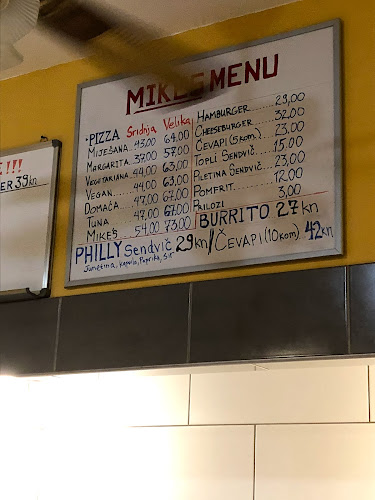 !!!
ER 39kn
MIKES MENU
• PIZZA Srednja Velika
MIJEŠANA 43,00 64,00
MARGARITA 37,00 57,00
VEGITARIANA 44,00 63,00
VEGAN 44,00 63,00
DOMAĆA 47,00 67,00
TUNA 47,00 67,00
MIKEŠ 54,00 73,00
HAMBURGER 29,00
CHEESEBURGER 32,00
ČEVAPI (5 KOM) 23,00
TOPLI SENDVIČ 15,00
PILETINA SENDVIČ 23,00
POMFRIT 12,00
PRILOZI 3,00
BURRITO 27 kn
PHILLY Sendvič 29kn/ČEVAPI (10 KOM) 42kn
Junetina, Kapula, Paprika, Sir